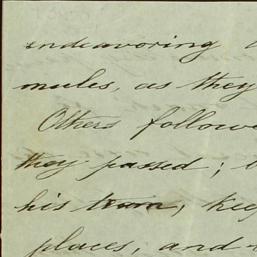 endeavoring
mules, as they
Others followe
they passed;
his team, kee
places, and